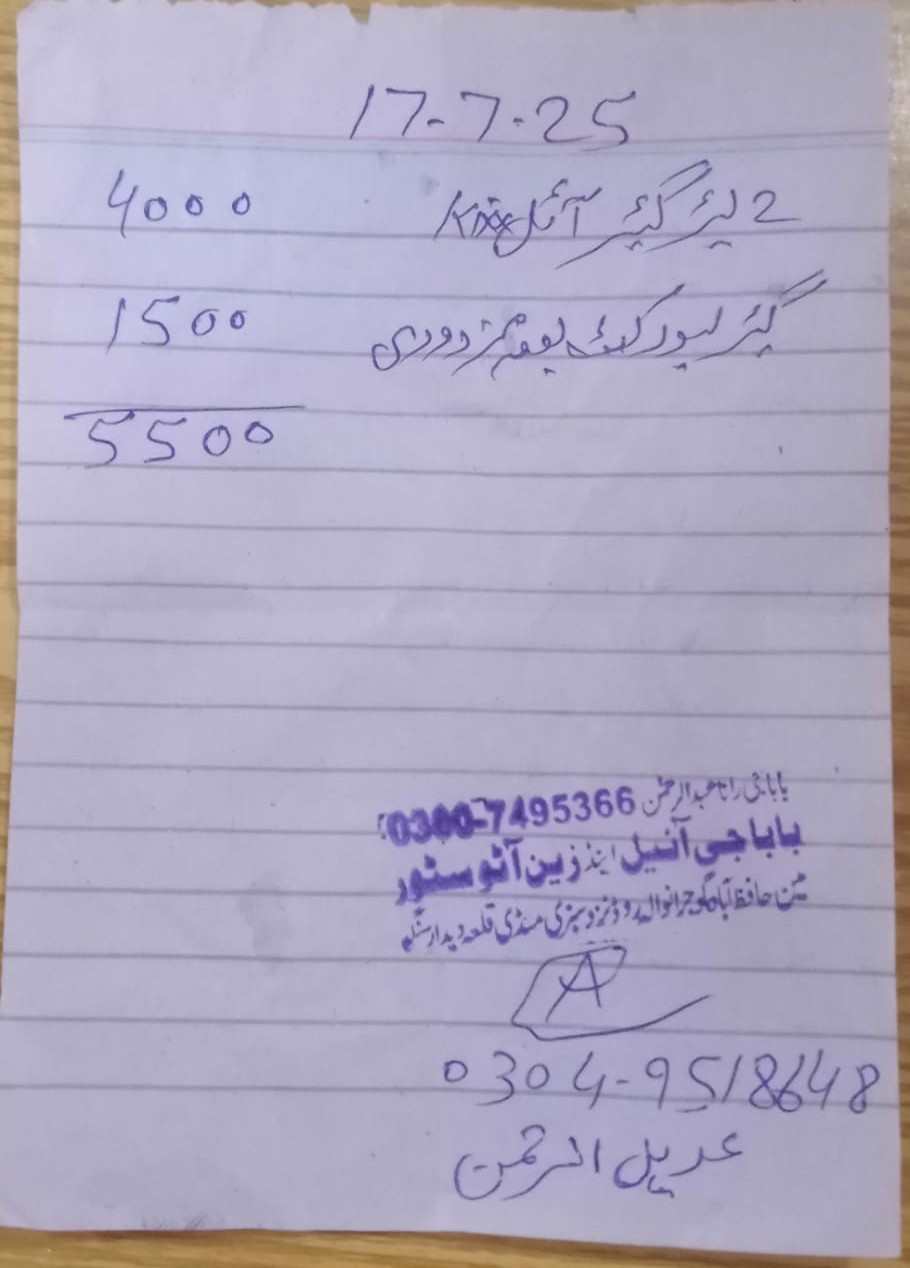 17-7-25
2 لیٹر گیئر آئل Kixx 4000
گیئر لیور کٹ بمعہ مزدوری 1500
5500
بابا جی رانا عبدالرحمٰن 0300-7495366
بابا جی آئیل اینڈ زین آٹو سٹور
مین حافظ آباد گوجرانوالہ روڈ نزد سبزی منڈی قلعہ دیدار سنگھ
A
0304-9518648
عدیل الرحمن